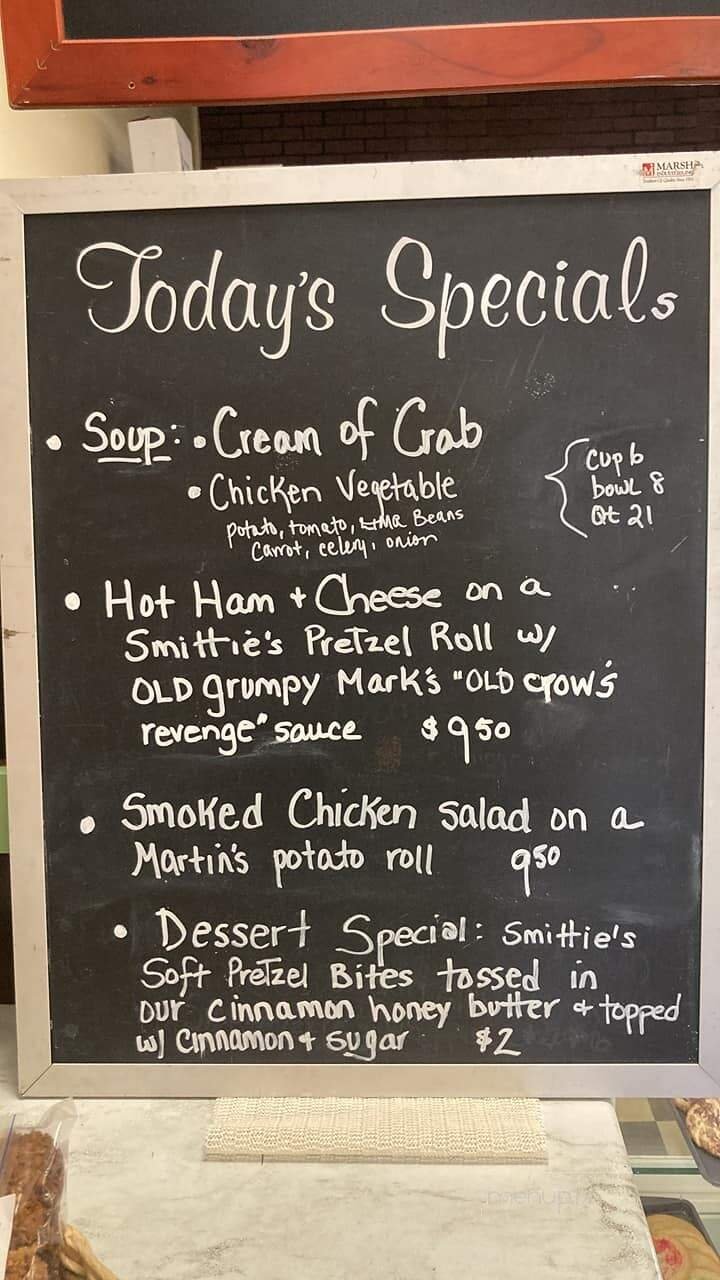 MARSH
INDUSTRIES, INC.
Today's Specials
• Soup: • Cream of Crab
• Chicken Vegetable
potato, tomato, Lima Beans
Carrot, celery, onion
Cup 6
bowl 8
Qt 21
• Hot Ham + Cheese on a
Smittie's Pretzel Roll w/
OLD grumpy Mark's "OLD crow's
revenge" sauce $9.50
• Smoked Chicken salad on a
Martin's potato roll 9.50
• Dessert Special: Smittie's
Soft Pretzel Bites tossed in
our cinnamon honey butter & topped
w/ Cinnamon + Sugar $2